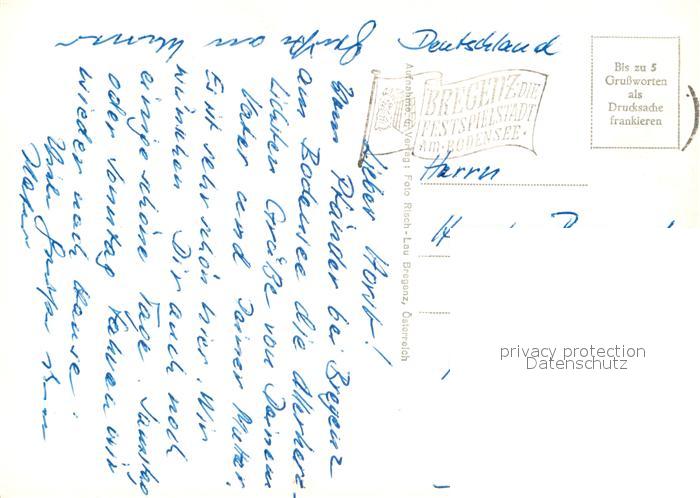 Deutschland
Bis zu 5
Grußworten
als
Drucksache
frankieren
BREGENZ·DIE
FESTSPIELSTADT
AM·BODENSEE·
Herrn
H
privacy protection
Datenschutz
Aufnahme u. Verlag: Foto Risch-Lau Bregenz, Österreich
Lieber Horst!
Vom Pfänder bei Bregenz
am Bodensee die allerherz-
lichsten Grüße von Deinem
Vater und Deiner Mutter.
Es ist sehr schön hier. Wir
wünschen Dir auch noch
einige schöne Tage. Samstag
oder Sonntag fahren wir
wieder nach Hause.
Viele Grüße
Vater
Grüße an